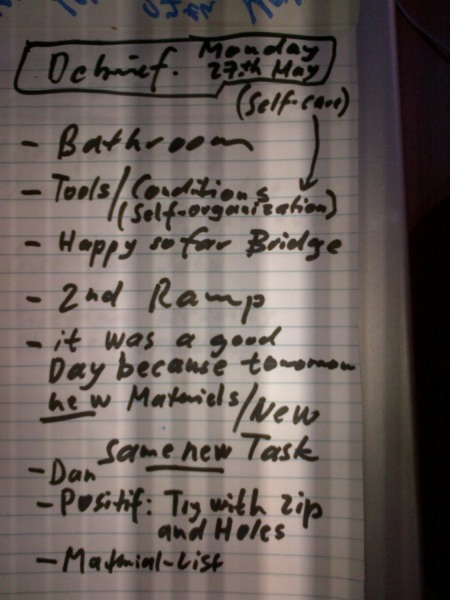 Debrief. Monday
27.th May
(Self-care)
- Bathroom
- Tools/Conditions
(Self-organization)
- Happy so far Bridge
- 2nd Ramp
- it was a good
Day because tomorrow
new Materiels/New
same new Task
- Dan
- Positif: Try with zip
and Holes
- Material-List